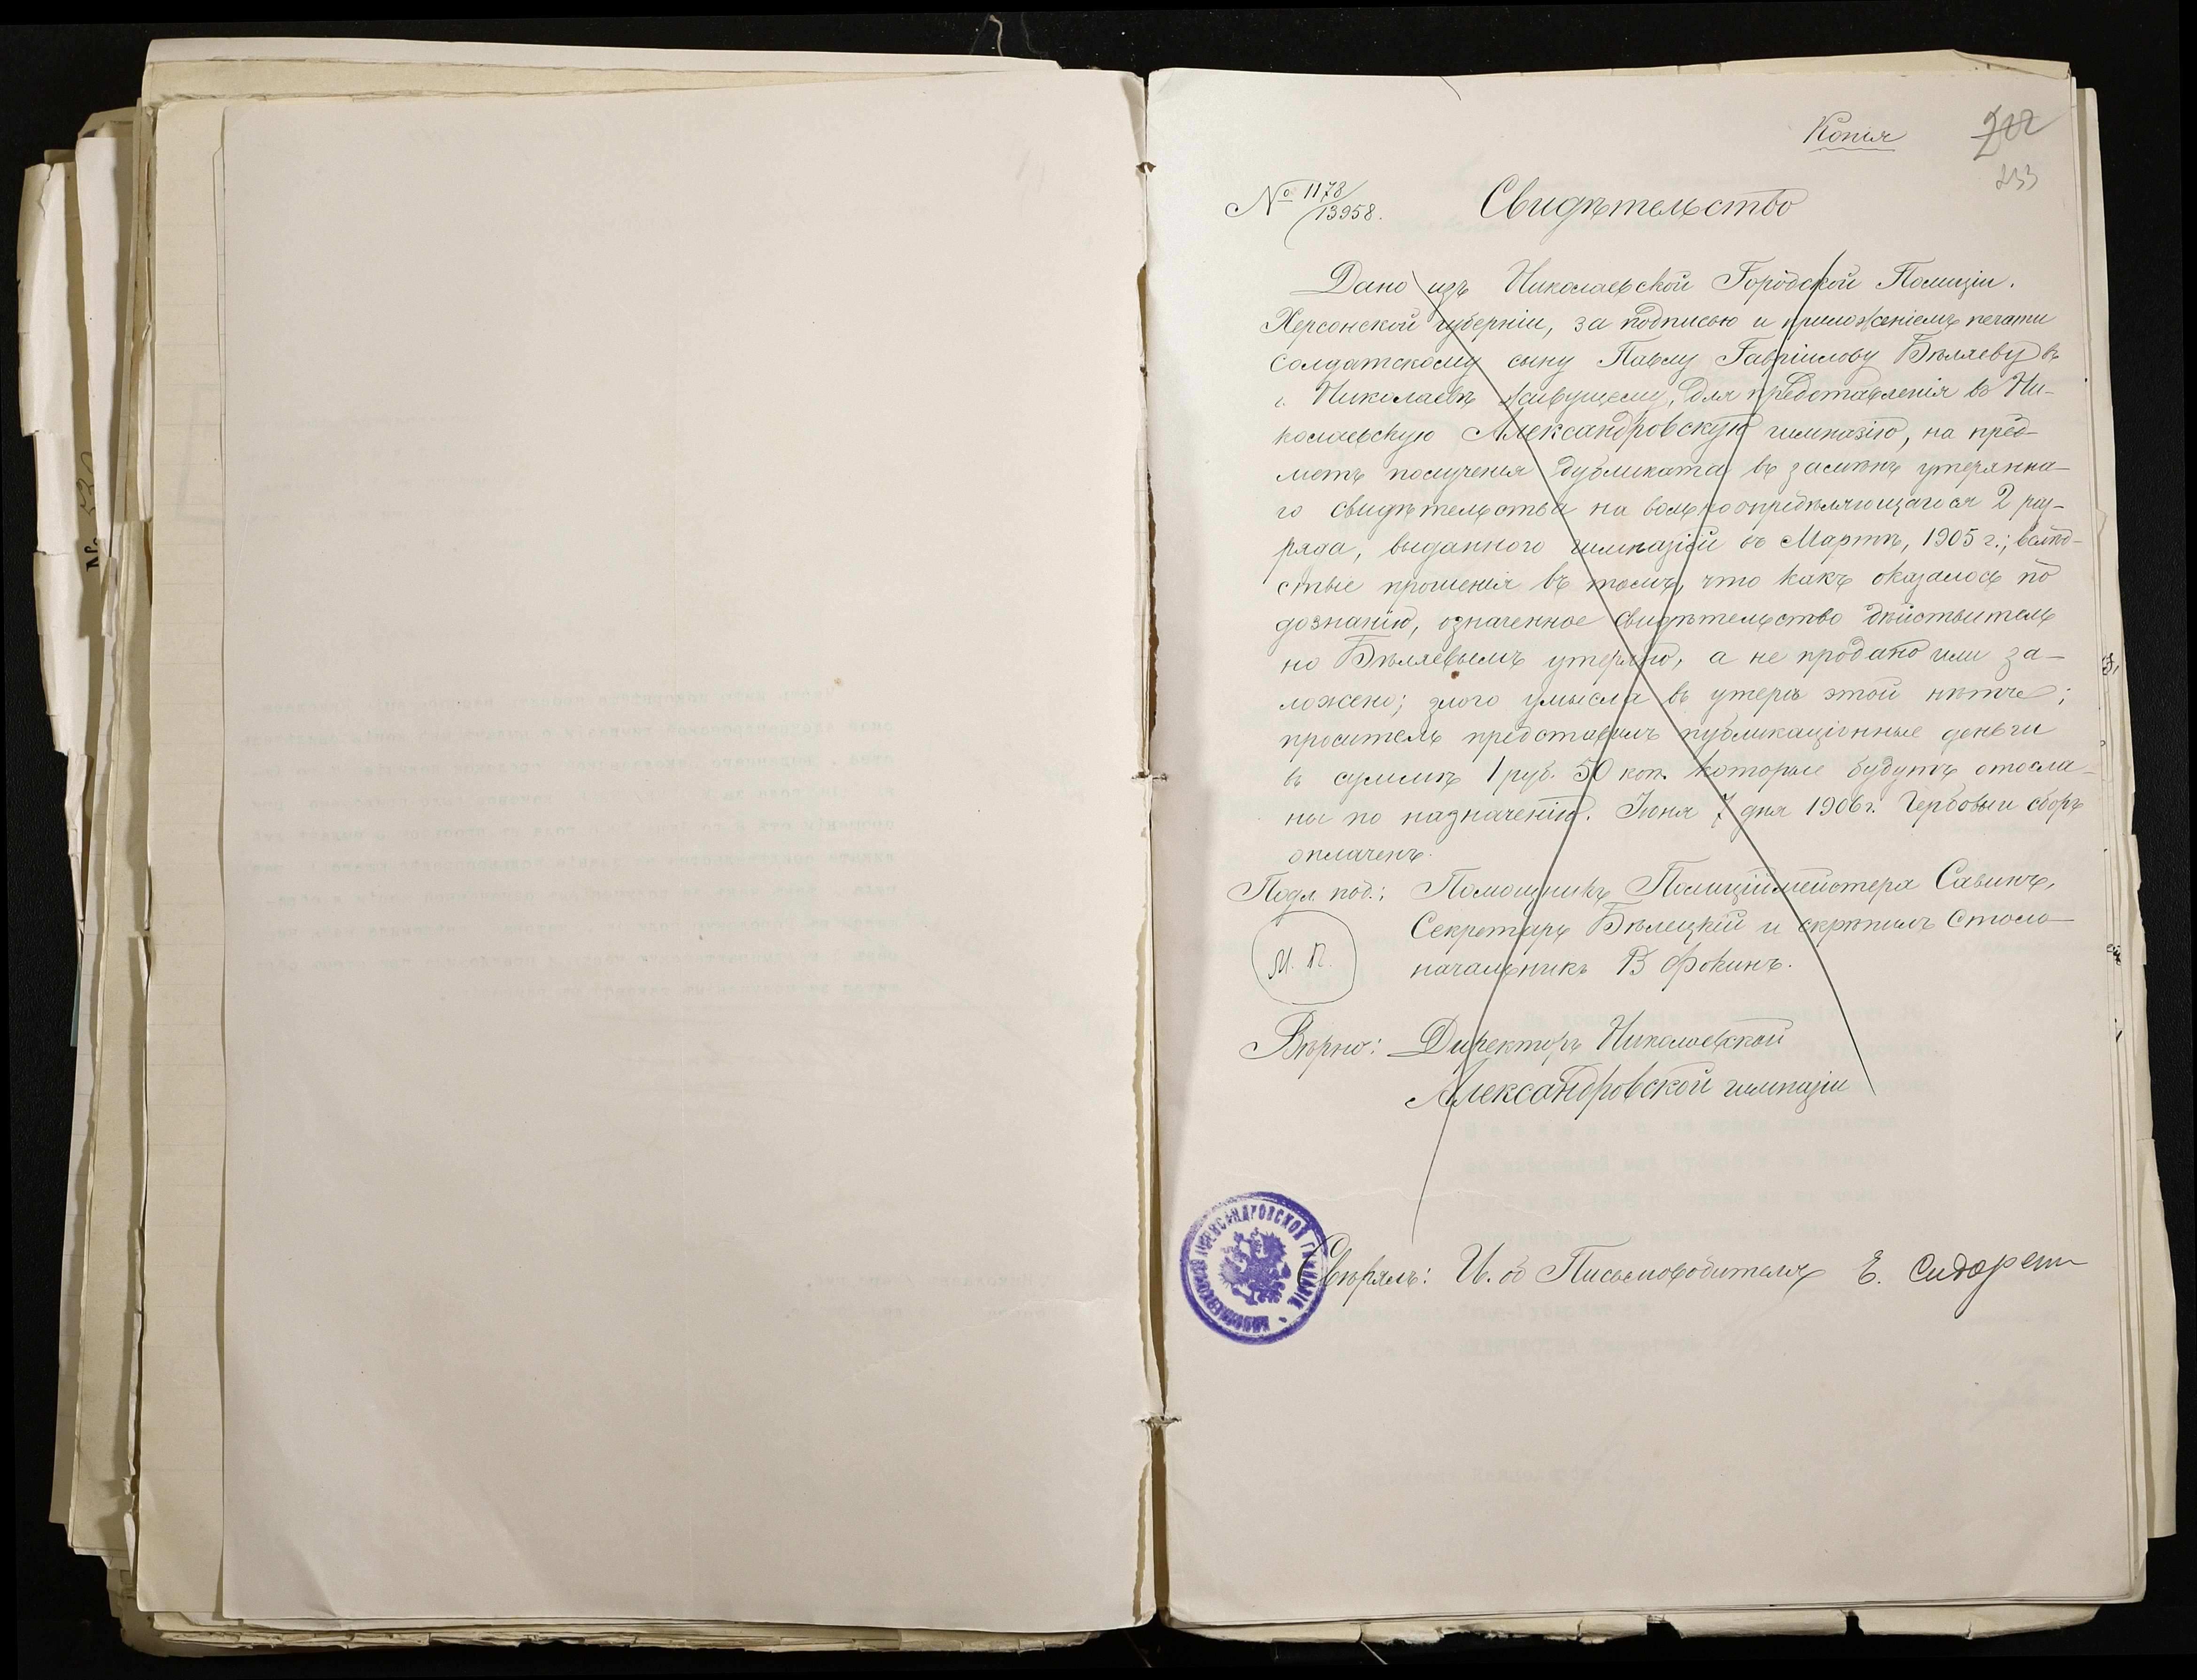 Копія
212
233
№ 1178/13958.
Свидѣтельство
Дано изъ Николаевской Городской Полиціи.
Херсонской губерніи, за подписью и приложеніемъ печати
солдатскому сыну Павлу Гавріилову Бѣляеву въ
г. Николаевѣ живущему, для представленія въ Ни-
колаевскую Александровскую гимназію, на пред-
метъ полученія дубликата въ замѣнъ утерянна-
го свидѣтельства на вольноопредѣляющагося 2 раз-
ряда, выданного гимназіей въ Мартѣ, 1905 г.; вслѣд-
ствіе прошенія въ томъ, что какъ оказалось по
дознанію, означенное свидѣтельство дѣйствитель
но Бѣляевымъ утеряно, а не продано или за-
ложено; злого умысла въ утерѣ этой нѣтъ;
проситель представилъ публикаціонные деньги
въ суммѣ 1 руб. 50 коп. которые будутъ отосла-
ны по назначенію. Іюня 7 дня 1906 г. Гербовый сборъ
оплаченъ.
Подл. под.: Помощникъ Полиціймейстера Савинъ,
Секретарь Бѣлецкій и скрѣпилъ Столо-
М. П. начальникъ В Фокинъ.
Вѣрно: Директоръ Николаевской
Александровской гимназіи
НИКОЛАЕВСКОЙ АЛЕКСАНДРОВСКОЙ ГИМНАЗІИ
Свѣрялъ: И. об Письмоводителя Е.